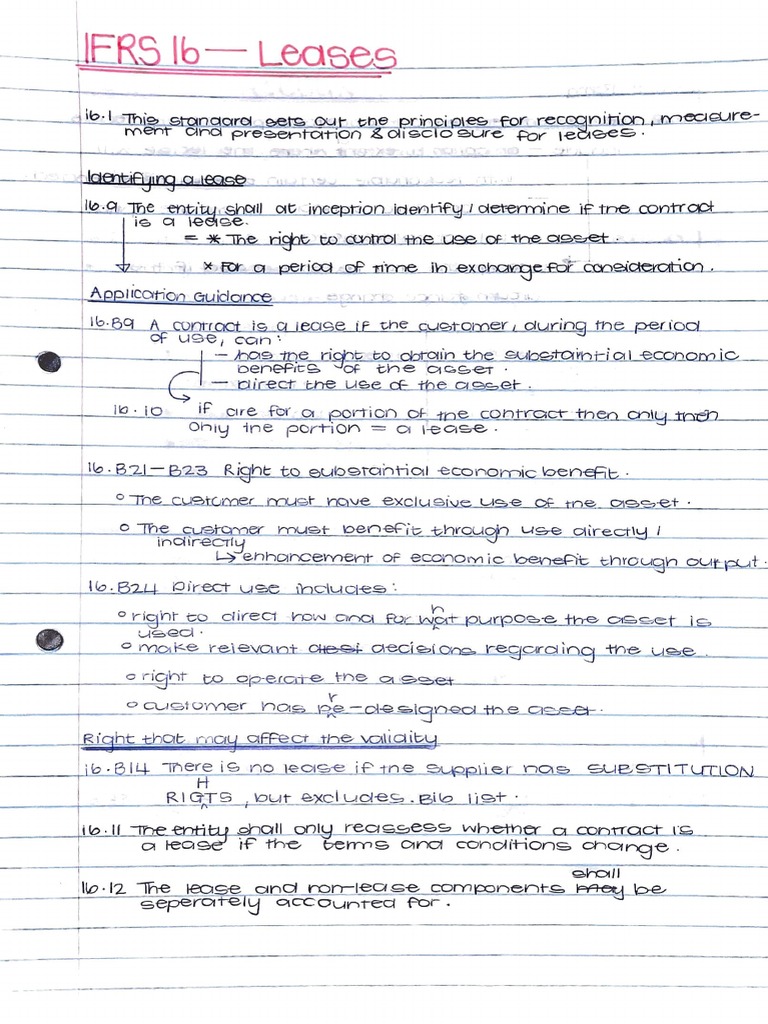 IFRS 16 — Leases
16.1 This standard sets out the principles for recognition, measure-
ment and presentation & disclosure for leases.
Identifying a lease
16.9 The entity shall at inception identify / determine if the contract
is a lease.
= * The right to control the use of the asset.
* For a period of time in exchange for consideration.
Application Guidance
16.B9 A contract is a lease if the customer, during the period
of use, can:
— has the right to obtain the substaintial economic
benefits of the asset.
— direct the use of the asset.
16.10 if are for a portion of the contract then only then
only the portion = a lease.
16.B21–B23 Right to substantial economic benefit.
° The customer must have exclusive use of the asset.
° The customer must benefit through use directly /
indirectly
↳ enhancement of economic benefit through output.
16.B24 Direct use includes:
° right to direct how and for what purpose the asset is
used.
° make relevant decisions regarding the use.
° right to operate the asset
° customer has pre-designed the asset.
Right that may affect the validity
16.B14 There is no lease if the supplier has SUBSTITUTION
RIGHTS, but excludes. B16 list.
16.11 The entity shall only reassess whether a contract is
a lease if the terms and conditions change.
16.12 The lease and non-lease components shall be
seperately accounted for.